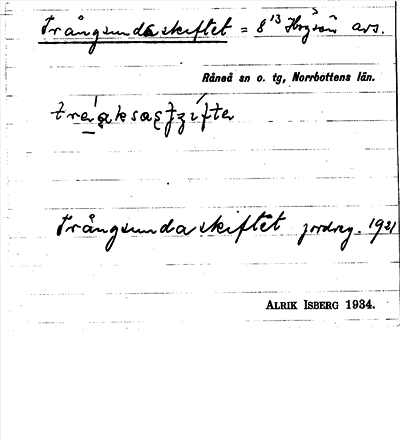 Trångsundaskiftet = 8¹³ Högsön avs.
Råneå sn o. tg, Norrbottens län.
Trångsundaskiftet jordreg. 1921
ALRIK ISBERG 1934.